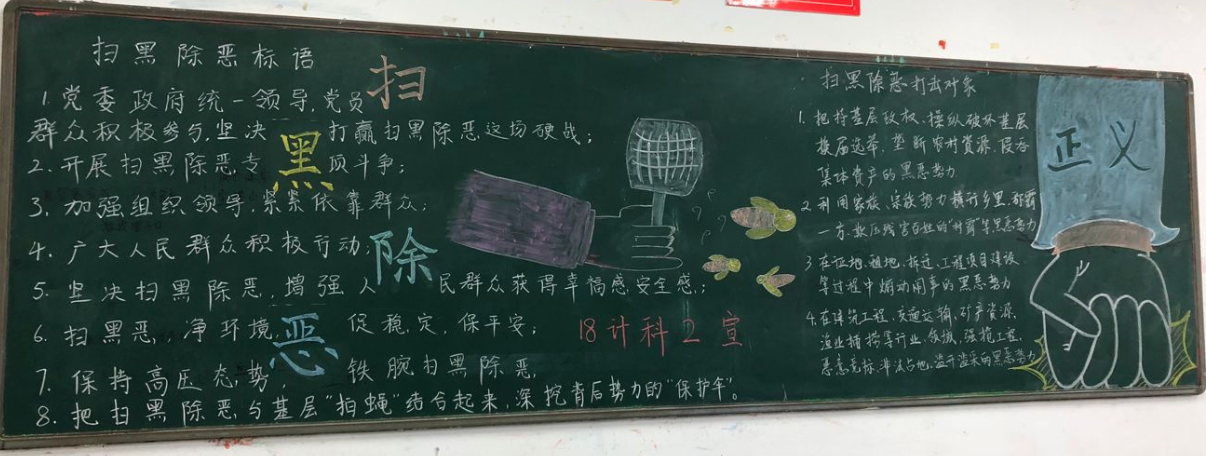 扫黑除恶标语
1.党委政府统一领导,党员
群众积极参与,坚决打赢扫黑除恶这场硬战;
2.开展扫黑除恶专项斗争;
3.加强组织领导,紧紧依靠群众;
4.广大人民群众积极行动,
5.坚决扫黑除恶,增强人民群众获得幸福感安全感;
6.扫黑恶,净环境,促稳定,保平安;
7.保持高压态势,铁腕扫黑除恶,
8.把扫黑除恶与基层“拍蝇”结合起来,深挖背后势力的“保护伞”。
扫
黑
除
恶
18计科2宣
扫黑除恶打击对象
1.把持基层政权、操纵破坏基层
换届选举、垄断农村资源、侵吞
集体资产的黑恶势力
2.利用家族、宗族势力横行乡里、称霸
一方、欺压残害百姓的“村霸”等黑恶势力
3.在征地、租地、拆迁、工程项目建设
等过程中煽动闹事的黑恶势力
4.在建筑工程、交通运输、矿产资源、
渔业捕捞等行业、领域,强揽工程、
恶意竞标、非法占地、滥开滥采的黑恶势力
正义